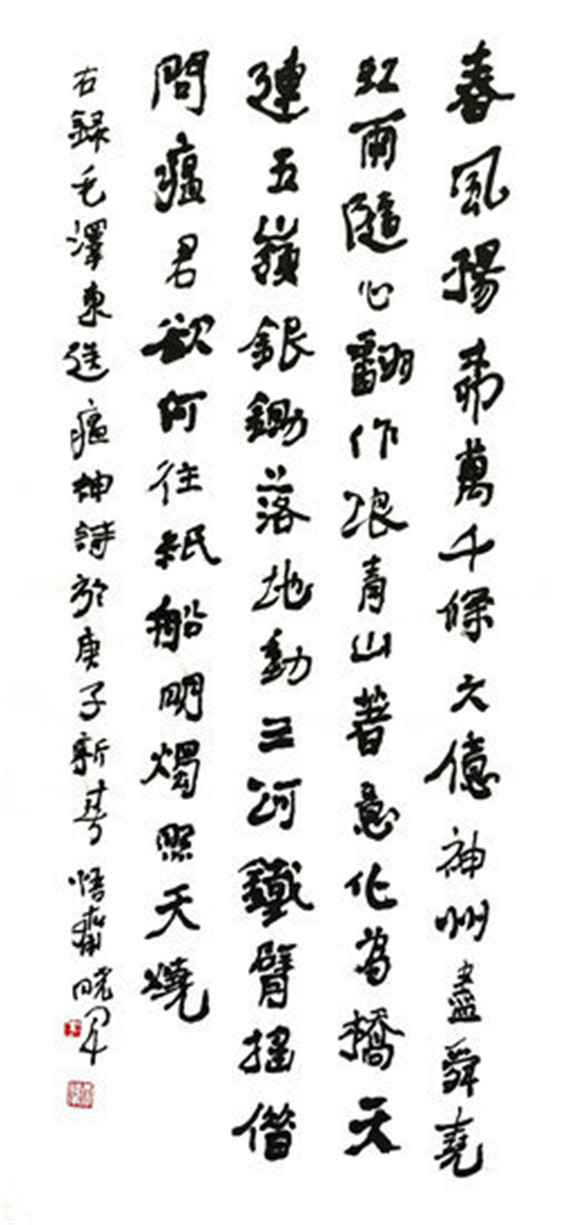 春風楊柳萬千條六億神州盡舜堯
紅雨隨心翻作浪青山著意化為橋天
連五嶺銀鋤落地動三河鐵臂搖借
問瘟君欲何往紙船明燭照天燒
右録毛澤東送瘟神詩於庚子新春悟齋曉